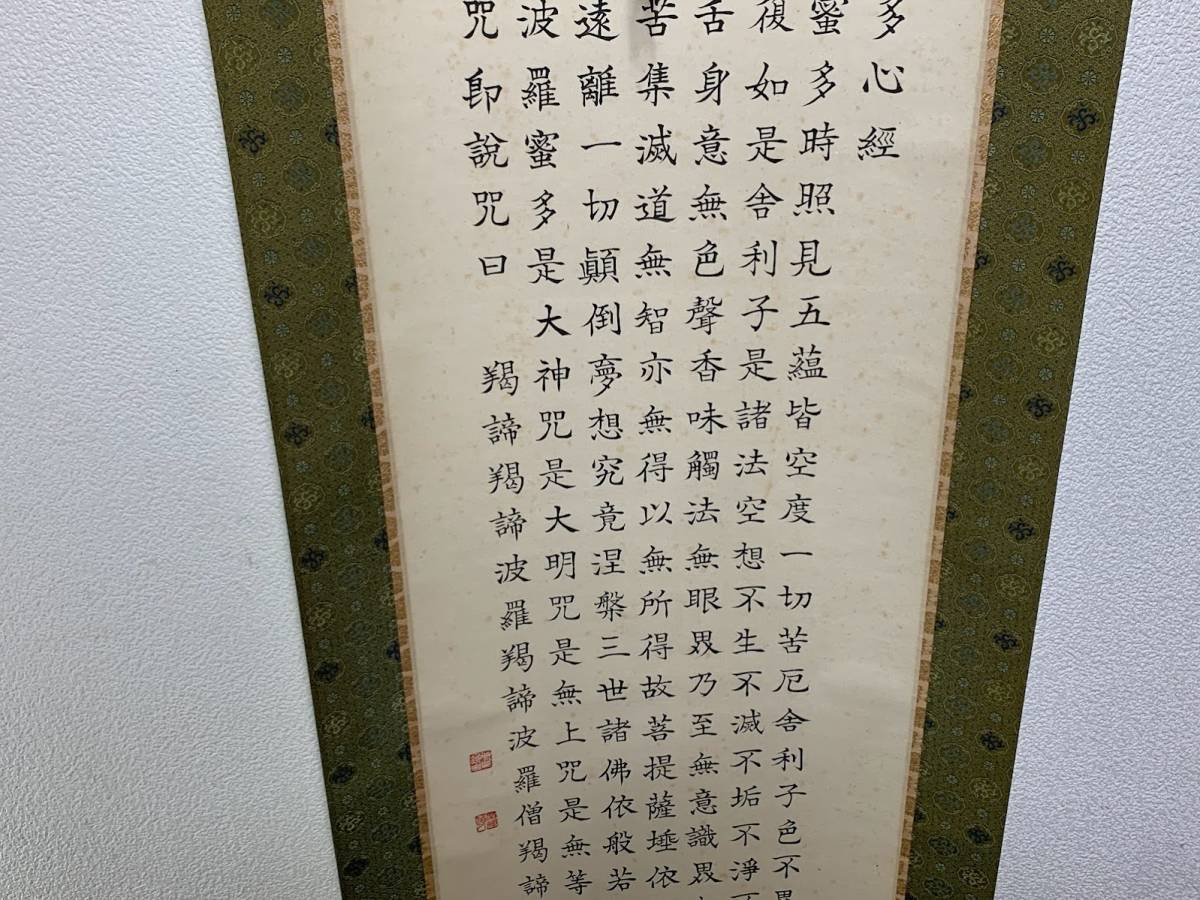 多心經
蜜多時照見五蘊皆空度一切苦厄舍利子色不異
復如是舍利子是諸法空想不生不滅不垢不淨不
舌身意無色聲香味觸法無眼界乃至無意識界
苦集滅道無智亦無得以無所得故菩提薩埵依
遠離一切顛倒夢想究竟涅槃三世諸佛依般若
波羅蜜多是大神咒是大明咒是無上咒是無等
咒即說咒曰 羯諦羯諦波羅羯諦波羅僧羯諦